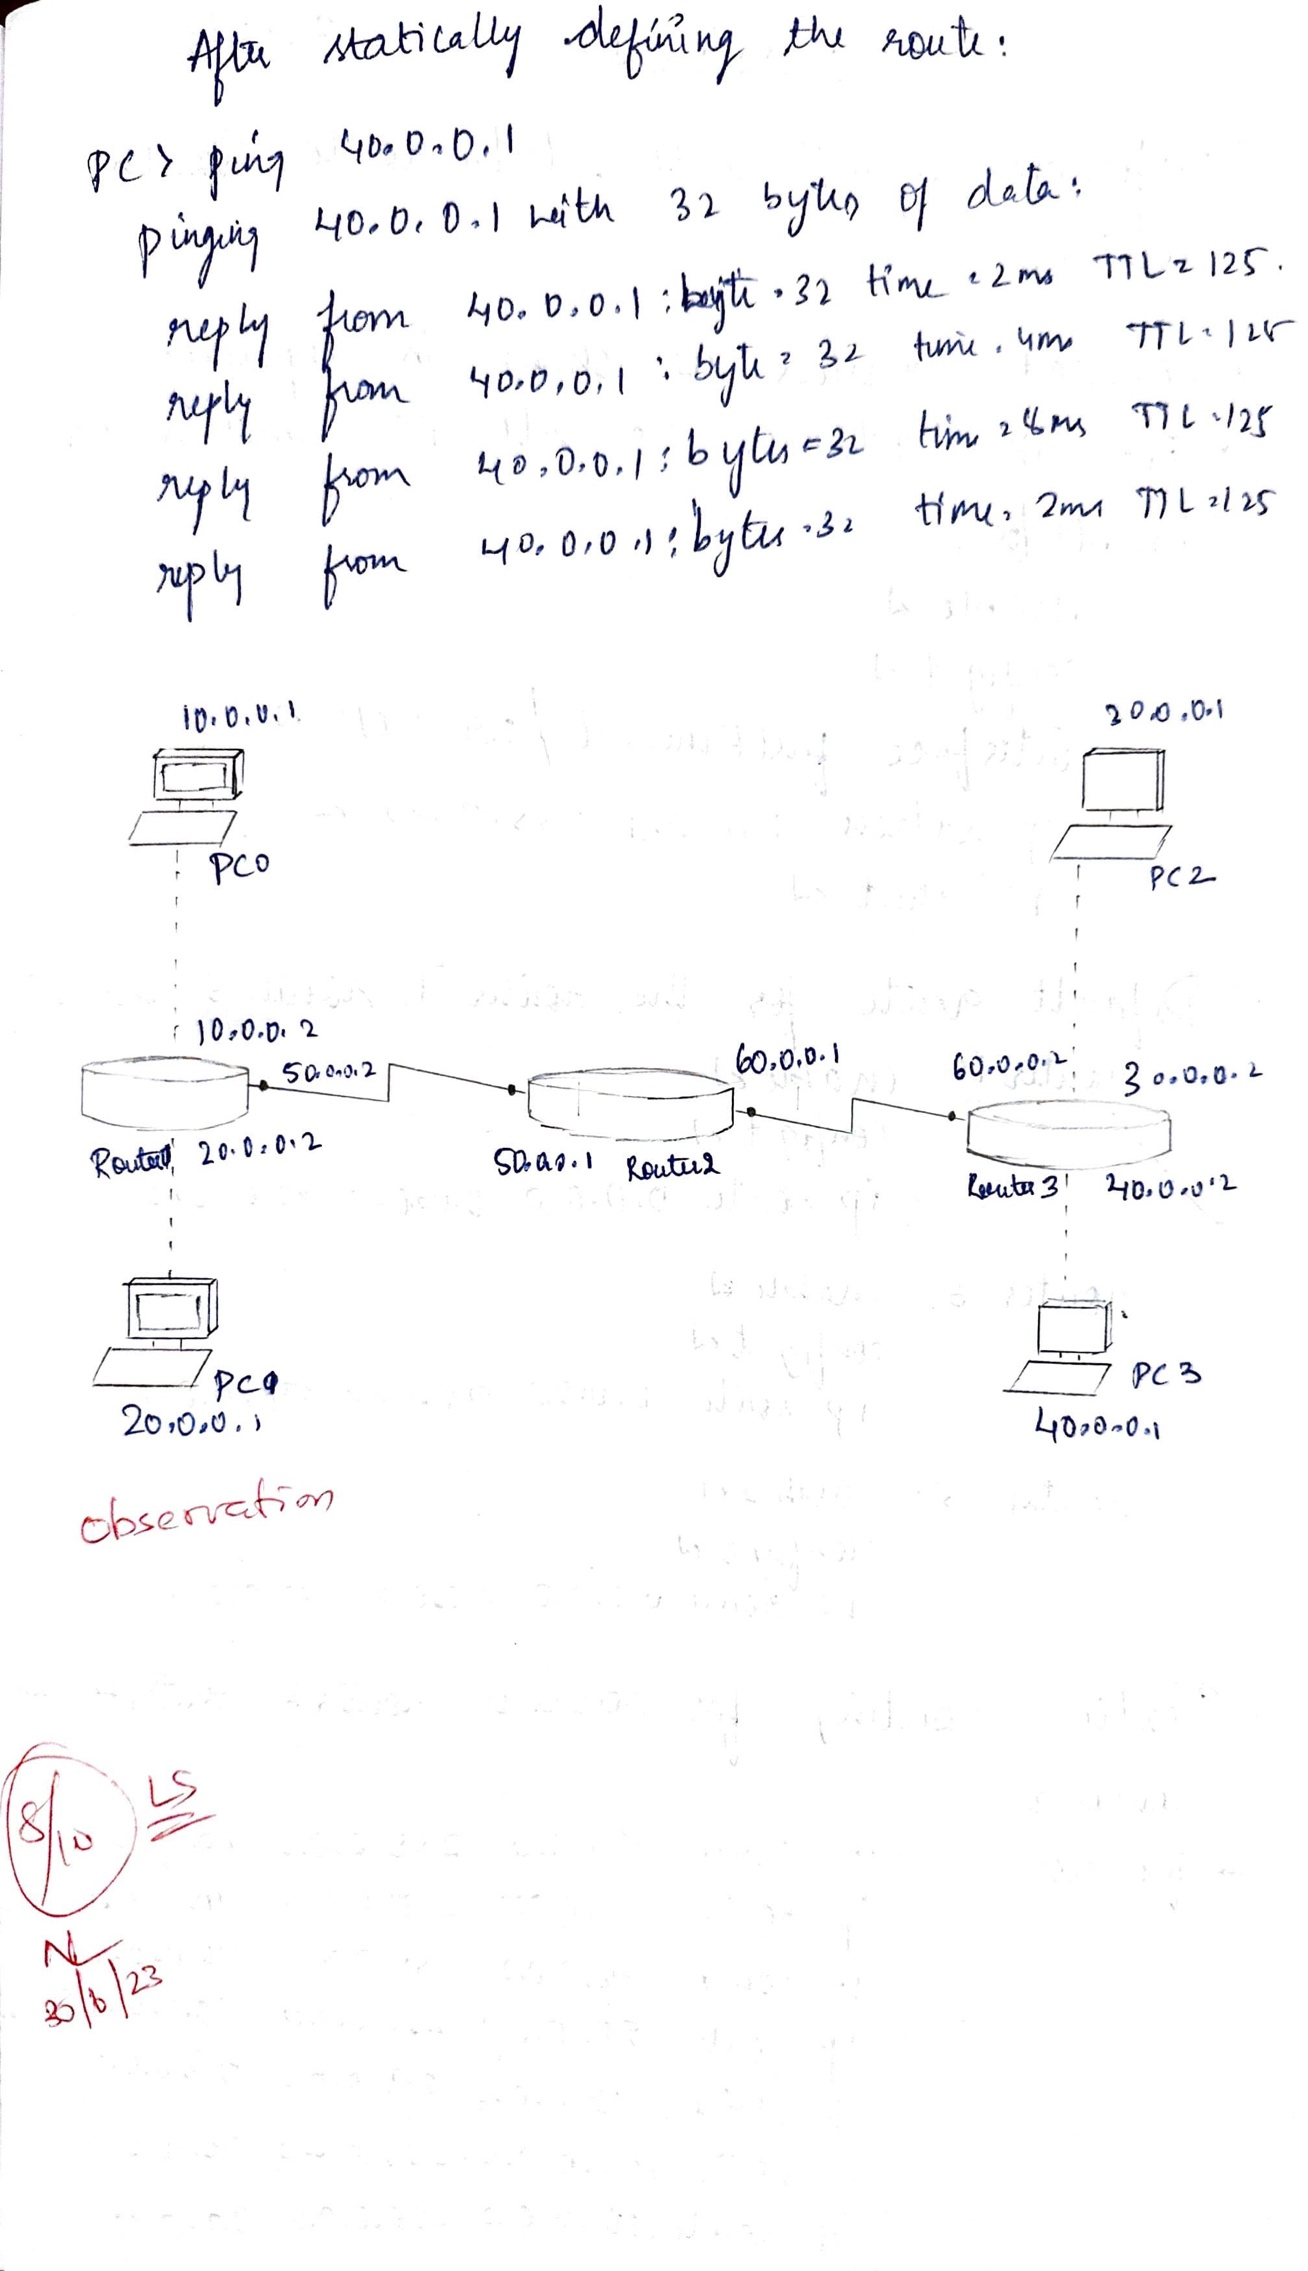 After statically defining the route:
PC> ping 40.0.0.1
pinging 40.0.0.1 with 32 bytes of data:
reply from 40.0.0.1: byte = 32 time = 2ms TTL = 125.
reply from 40.0.0.1: byte = 32 time = 4ms TTL = 125
reply from 40.0.0.1: bytes = 32 time = 8ms TTL = 125
reply from 40.0.0.1: bytes = 32 time = 2ms TTL = 125
10.0.0.1
30.0.0.1
PC0
PC2
10.0.0.2
50.0.0.2
60.0.0.1
60.0.0.2
30.0.0.2
Router1 20.0.0.2
50.0.0.1 Router2
Router 3 40.0.0.2
PC1
20.0.0.1
PC3
40.0.0.1
observation
8/10
LS
30/6/23